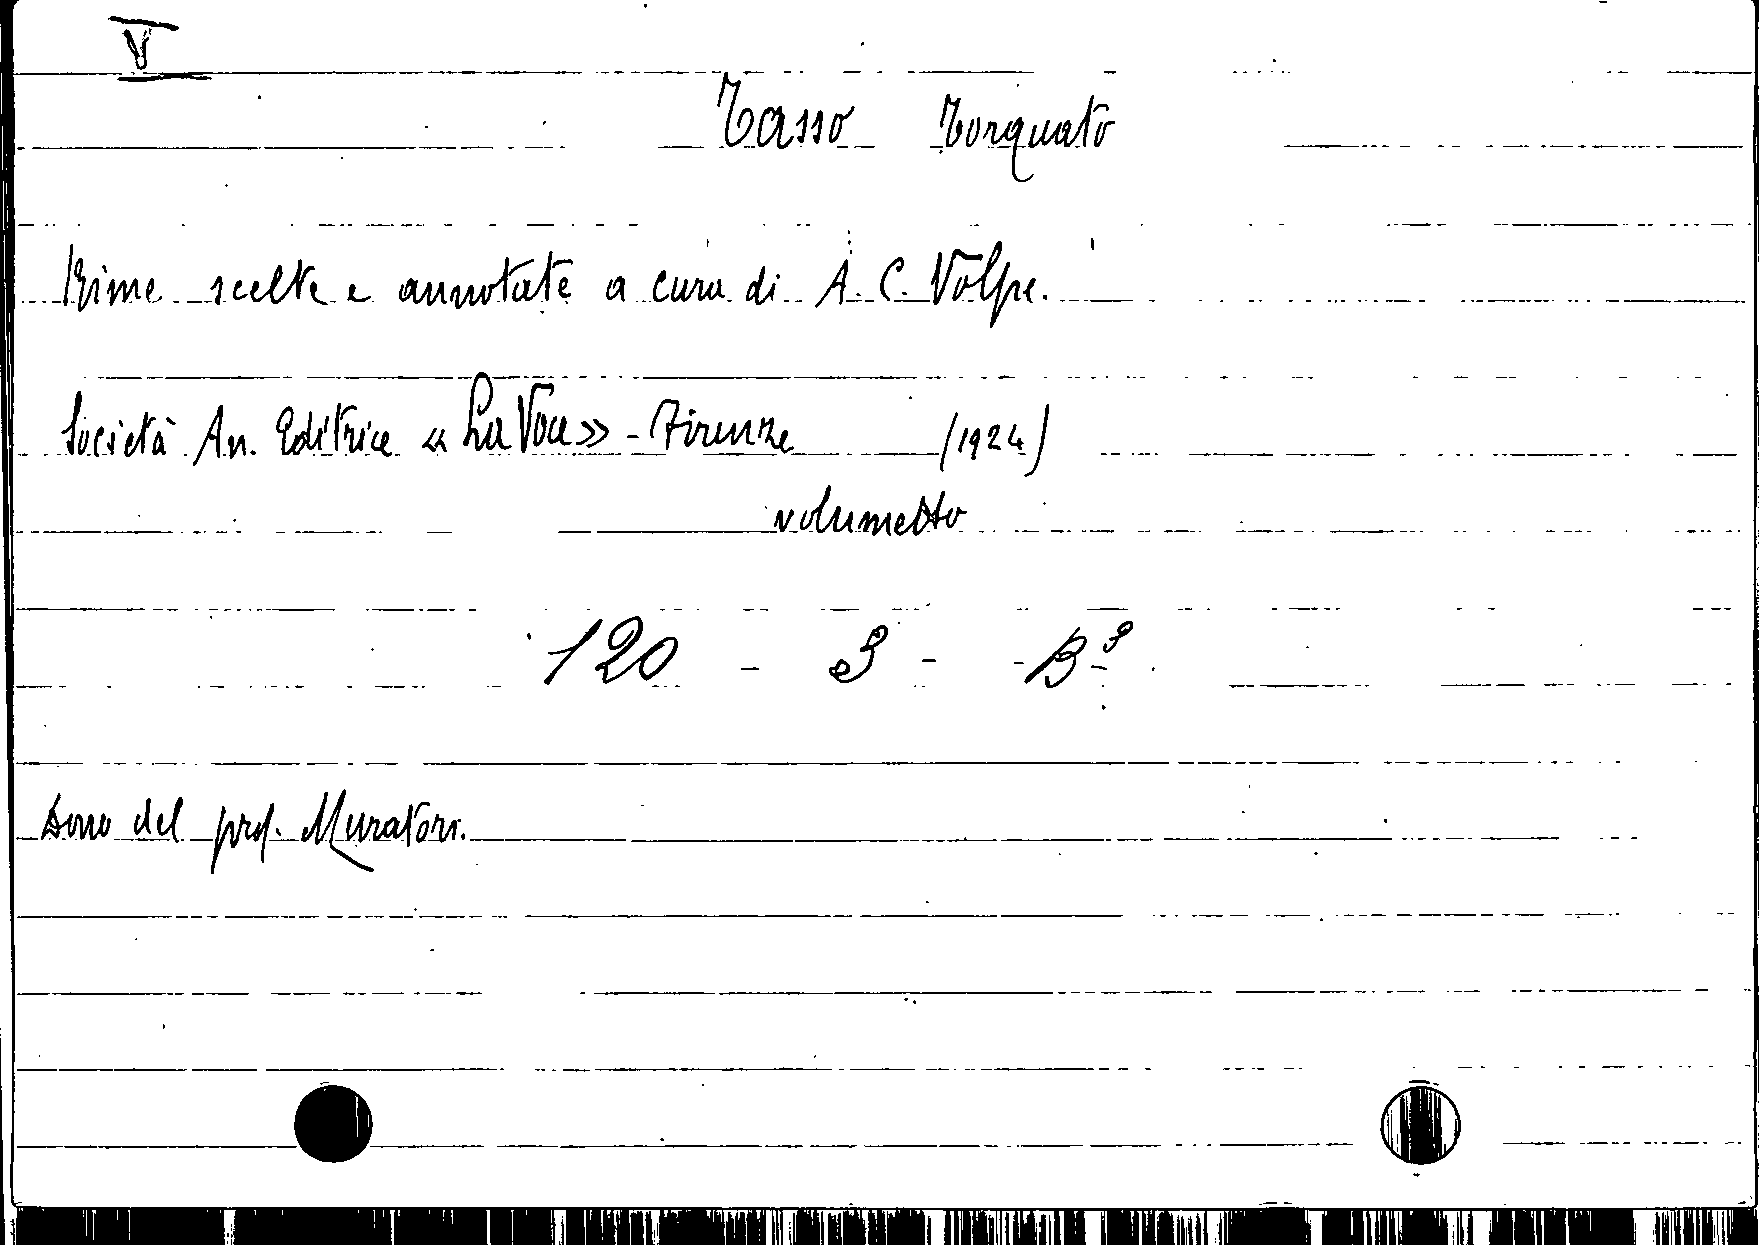 V
Tasso Torquato
Rime scelte e annotate a cura di A. C. Volpe.
Società An. Editrice « La Voce » - Firenze (1924)
volumetto
120 - 3 - B³
Dono del prof. Muratori.